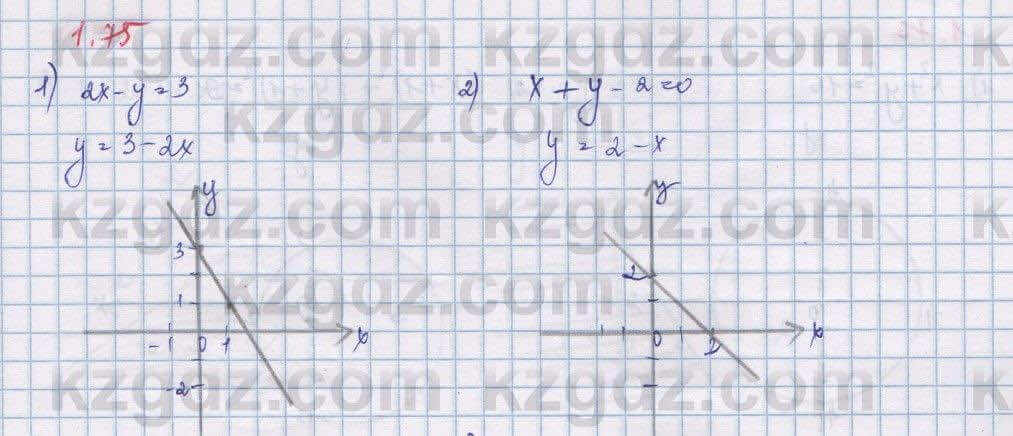 1.75
1) 2x-y=3
y=3-2x
2) x+y-2=0
y=2-x
y
3
1
-1 0 1 x
-2
y
2
0 2 x
kzgdz.com
kzgdz.com
kzgdz.com
kzgdz.com
kzgdz.com
kzgdz.com
kzgdz.com
kzgdz.com
kzgdz.com
kzgdz.com